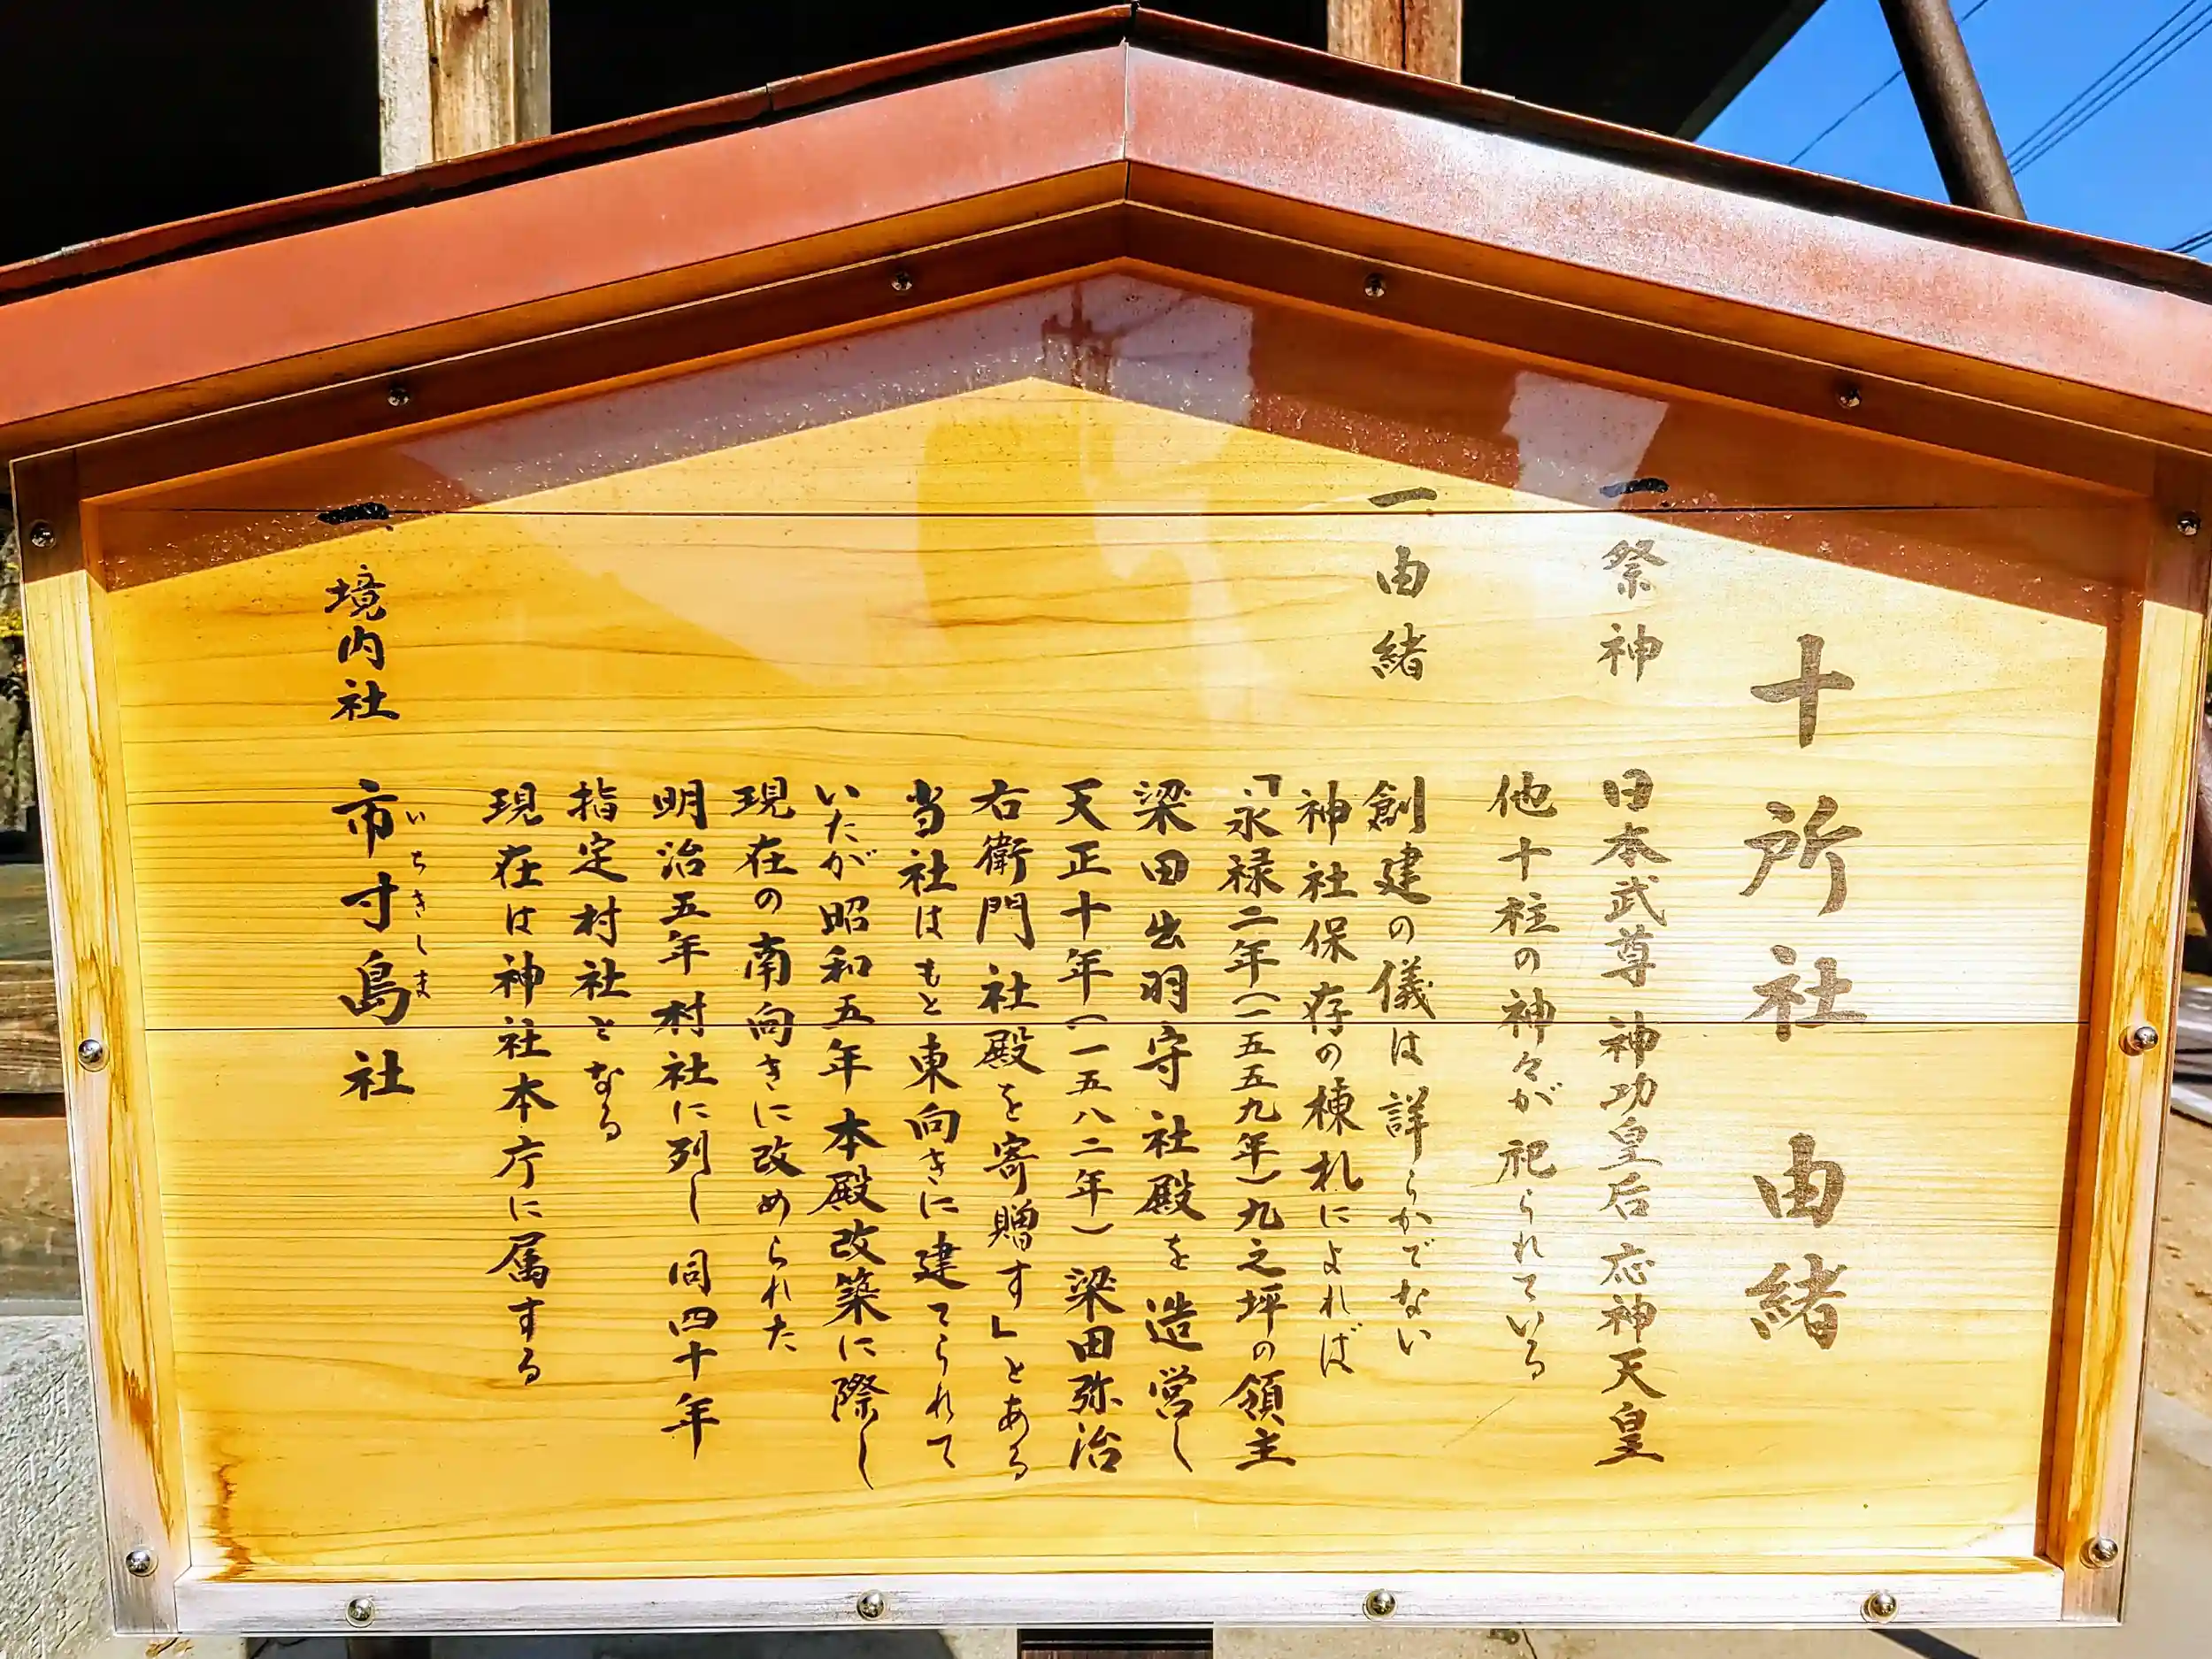 十所社 由緒
一、祭神 日本武尊 神功皇后 応神天皇
他十柱の神々が祀られている
一、由緒 創建の儀は詳らかでない
神社保存の棟札によれば
「永禄二年(一五五九年)九之坪の領主
梁田出羽守社殿を造営し
天正十年(一五八二年)梁田弥治
右衛門社殿を寄贈す」とある
当社はもと東向きに建てられて
いたが昭和五年本殿改築に際し
現在の南向きに改められた
明治五年村社に列し 同四十年
指定村社となる
現在は神社本庁に属する
一、境内社 市寸島社
いちきしま